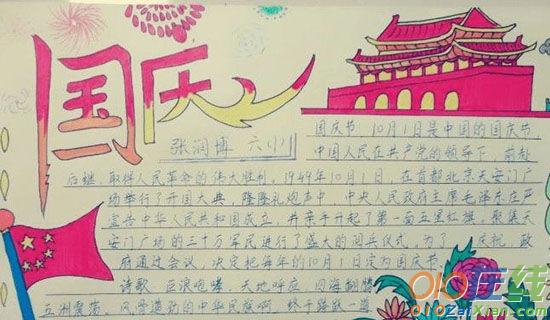 国庆
张润博 六(1)
国庆节,10月1日是中国的国庆节,
中国人民在共产党的领导下,前赴
后继,取得人民革命的伟大胜利,1949年10月1日,在首都北京天安门广
场举行了开国大典,隆隆礼炮声中,中央人民政府主席毛泽东庄严
宣告中华人民共和国成立,并亲手升起了第一面五星红旗,聚集天
安门广场的三十万军民进行了盛大的阅兵仪式,为了 庆祝,政
府通过会议,决定把每年的10月1日定为国庆节。
诗歌:巨浪咆哮,天地呼应,四海翻腾
五洲震荡,风雪造
的中华民族啊
在线
ZaiXian.com